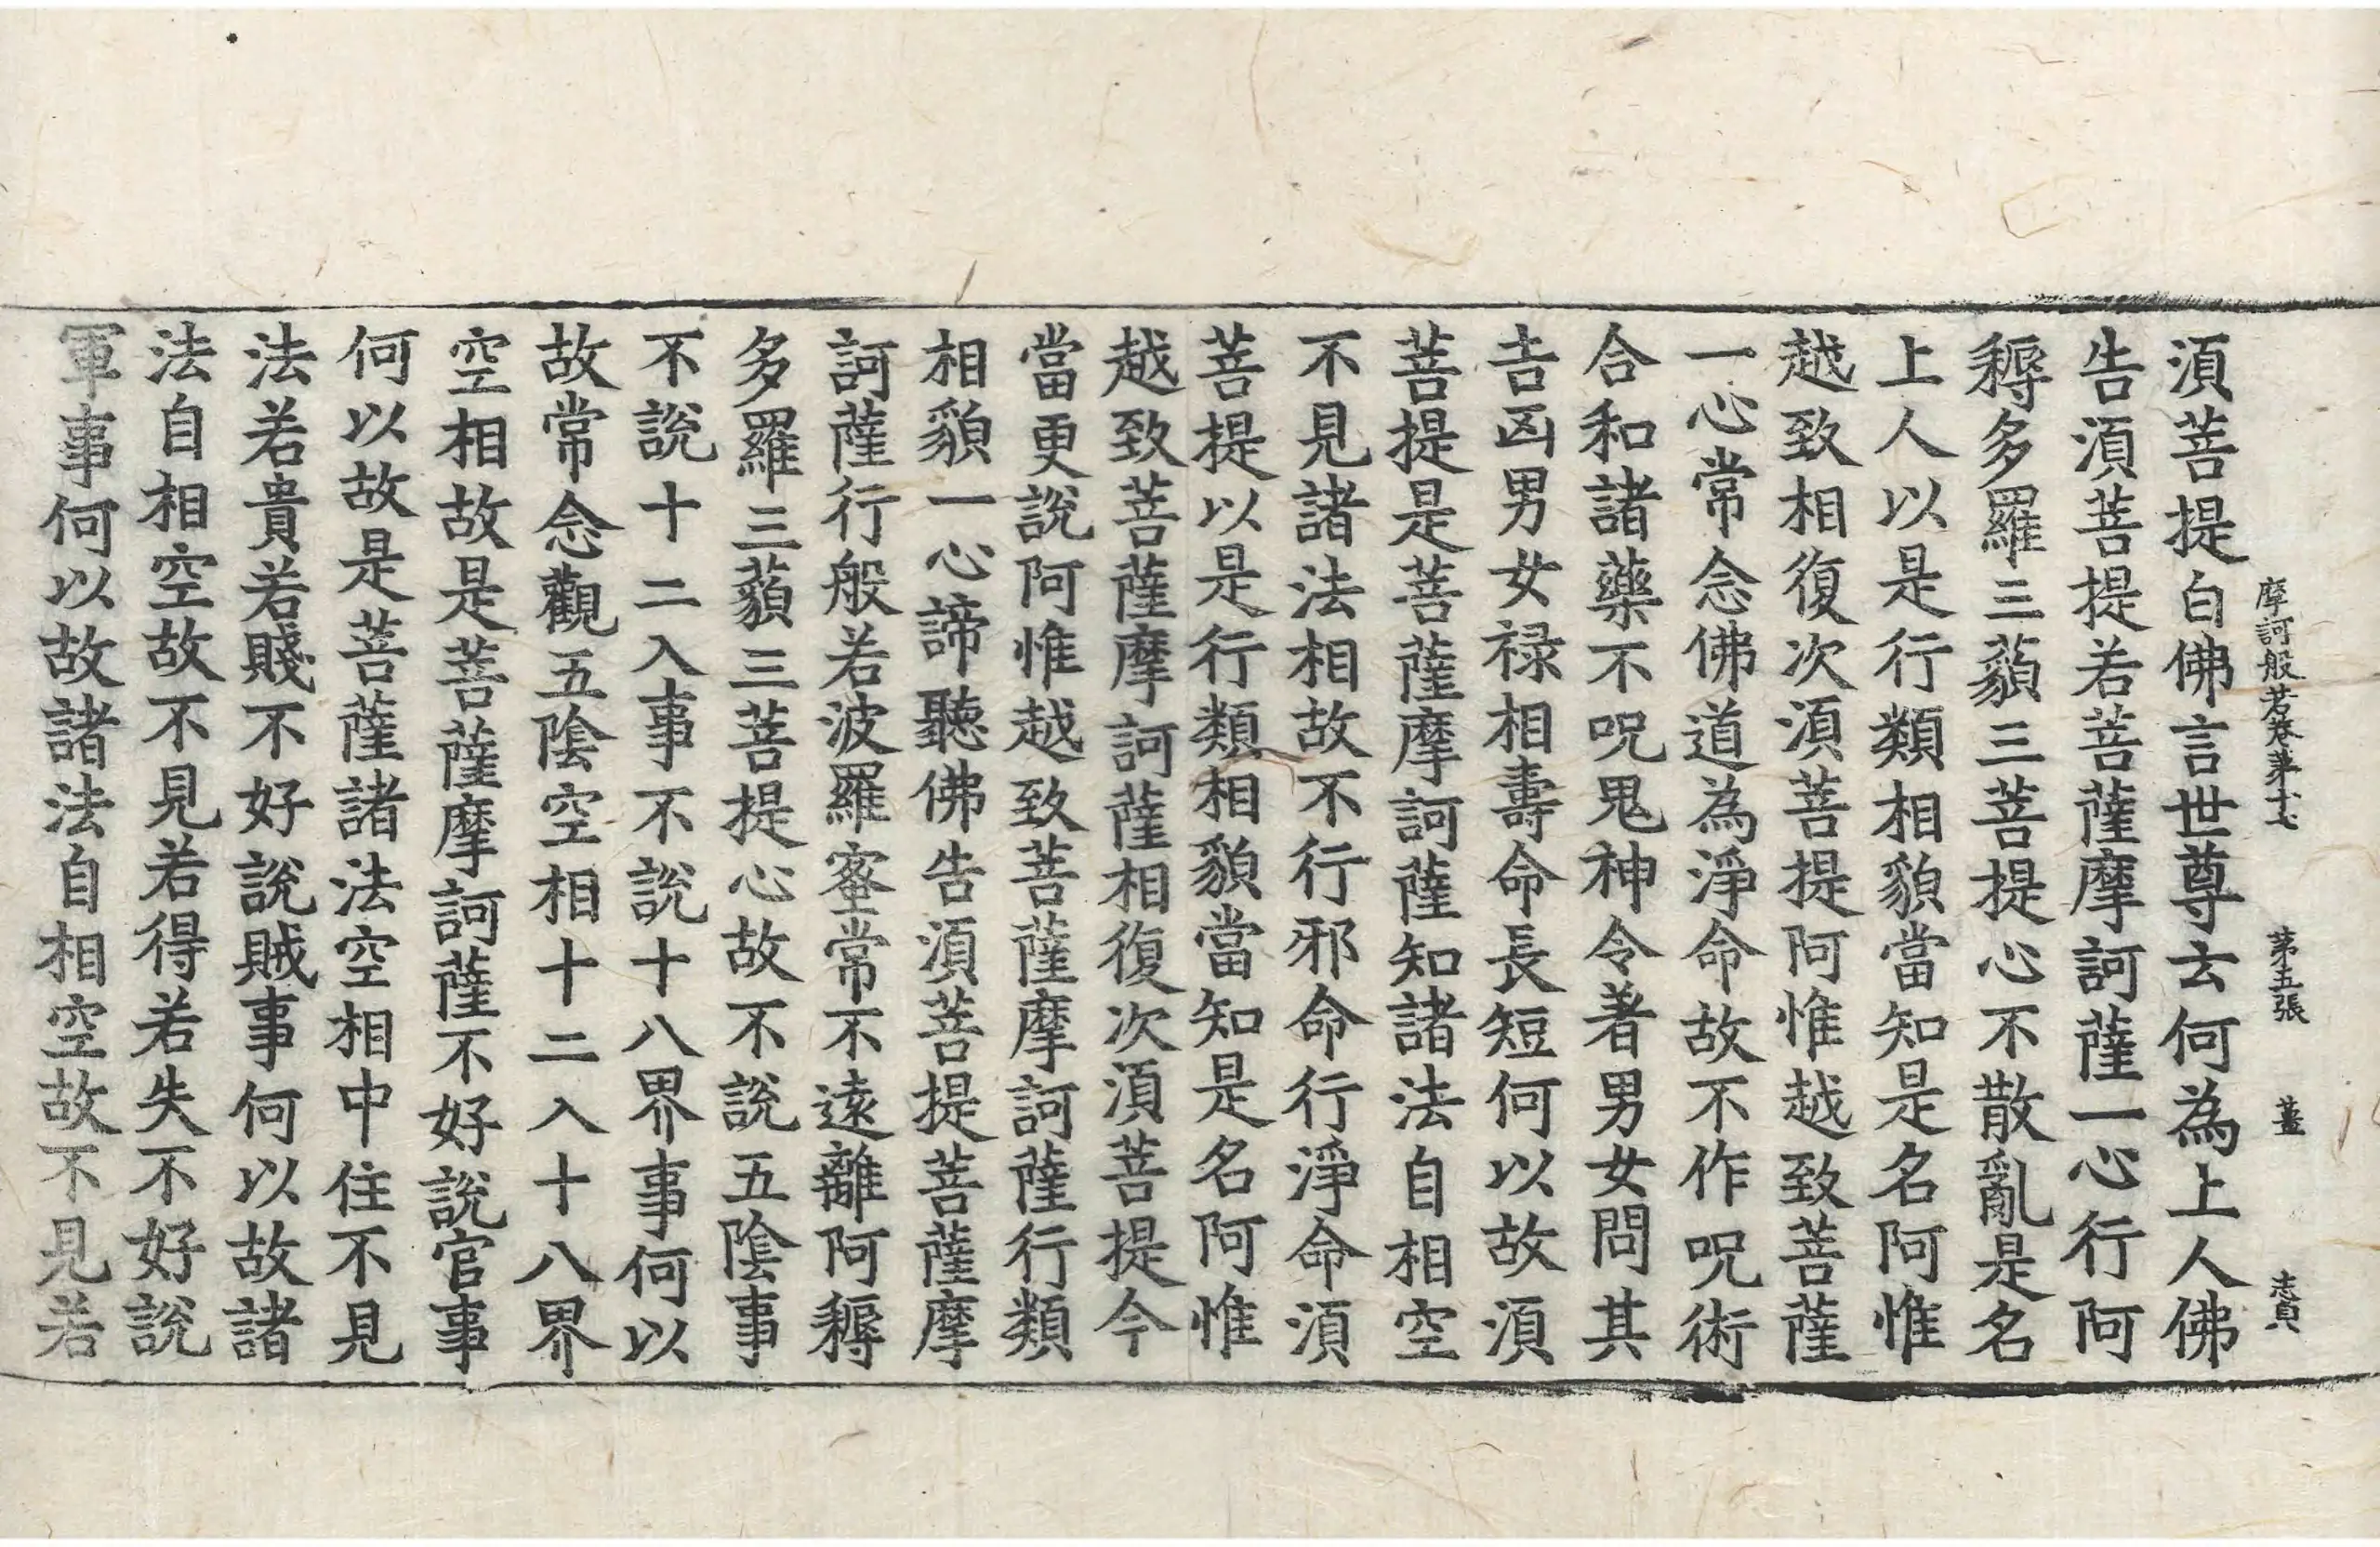 摩訶般若卷第十七 第五張 薑 志貟
湏菩提白佛言世尊云何為上人佛
告湏菩提若菩薩摩訶薩一心行阿
耨多羅三藐三菩提心不散亂是名
上人以是行類相貌當知是名阿惟
越致相復次湏菩提阿惟越致菩薩
一心常念佛道為淨命故不作呪術
合和諸藥不呪鬼神令著男女問其
吉凶男女禄相壽命長短何以故湏
菩提是菩薩摩訶薩知諸法自相空
不見諸法相故不行邪命行淨命湏
菩提以是行類相貌當知是名阿惟
越致菩薩摩訶薩相復次湏菩提今
當更說阿惟越致菩薩摩訶薩行類
相貌一心諦聽佛告湏菩提菩薩摩
訶薩行般若波羅蜜常不遠離阿耨
多羅三藐三菩提心故不說五陰事
不說十二入事不說十八界事何以
故常念觀五陰空相十二入十八界
空相故是菩薩摩訶薩不好說官事
何以故是菩薩諸法空相中住不見
法若貴若賤不好說賊事何以故諸
法自相空故不見若得若失不好說
軍事何以故諸法自相空故不見若